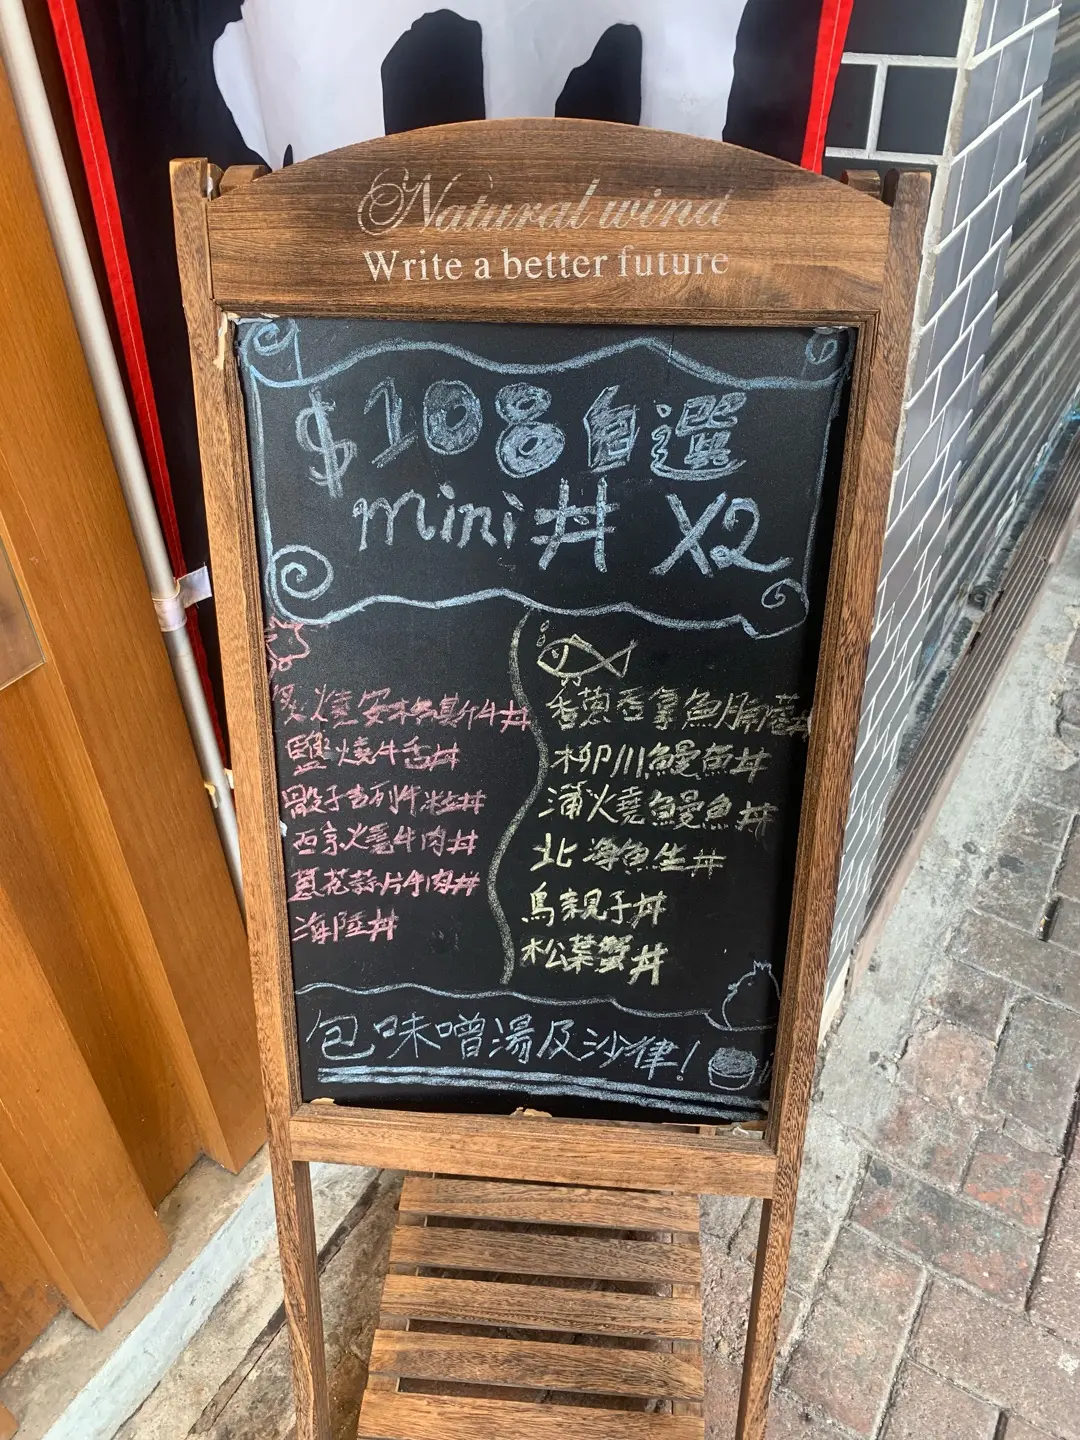 Natural wind
Write a better future
$108自選
mini丼 X2
炙燒安格斯牛丼
鹽燒牛舌丼
骰子吉列牛粒丼
西京燒牛肉丼
蔥花蒜片牛肉丼
海陸丼
香蔥吞拿魚腩蓉丼
柳川鰻魚丼
蒲燒鰻魚丼
北海魚生丼
鳥親子丼
松葉蟹丼
包味噌湯及沙律!